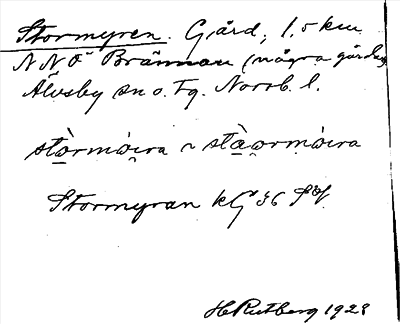 Stormyren. Gård, 1,5 km
NNO Brännan (några gårdar)
Älvsby sn o. tg. Norrb. l.
stòrmỳra ~ stàormỳra
Stormyran kG 36
H Rutberg 1928